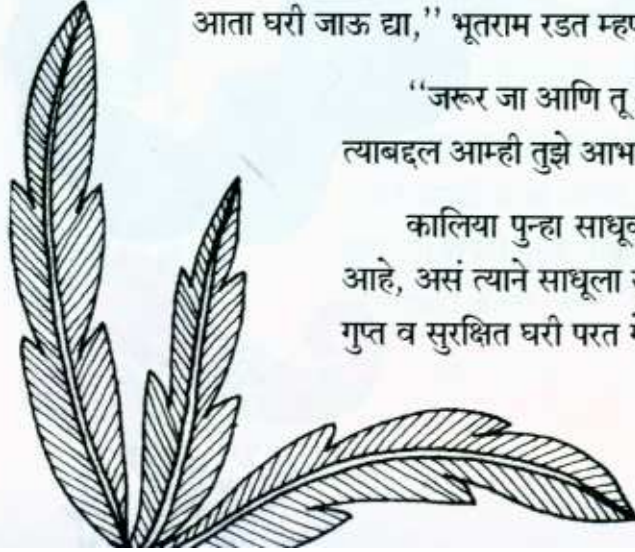 आता घरी जाऊ द्या,’’ भूतराम रडत
‘‘जरूर जा आणि तू
त्याबद्दल आम्ही तुझे
कालिया पुन्हा
आहे, असं त्याने साधूला
गुप्त व सुरक्षित घरी परत